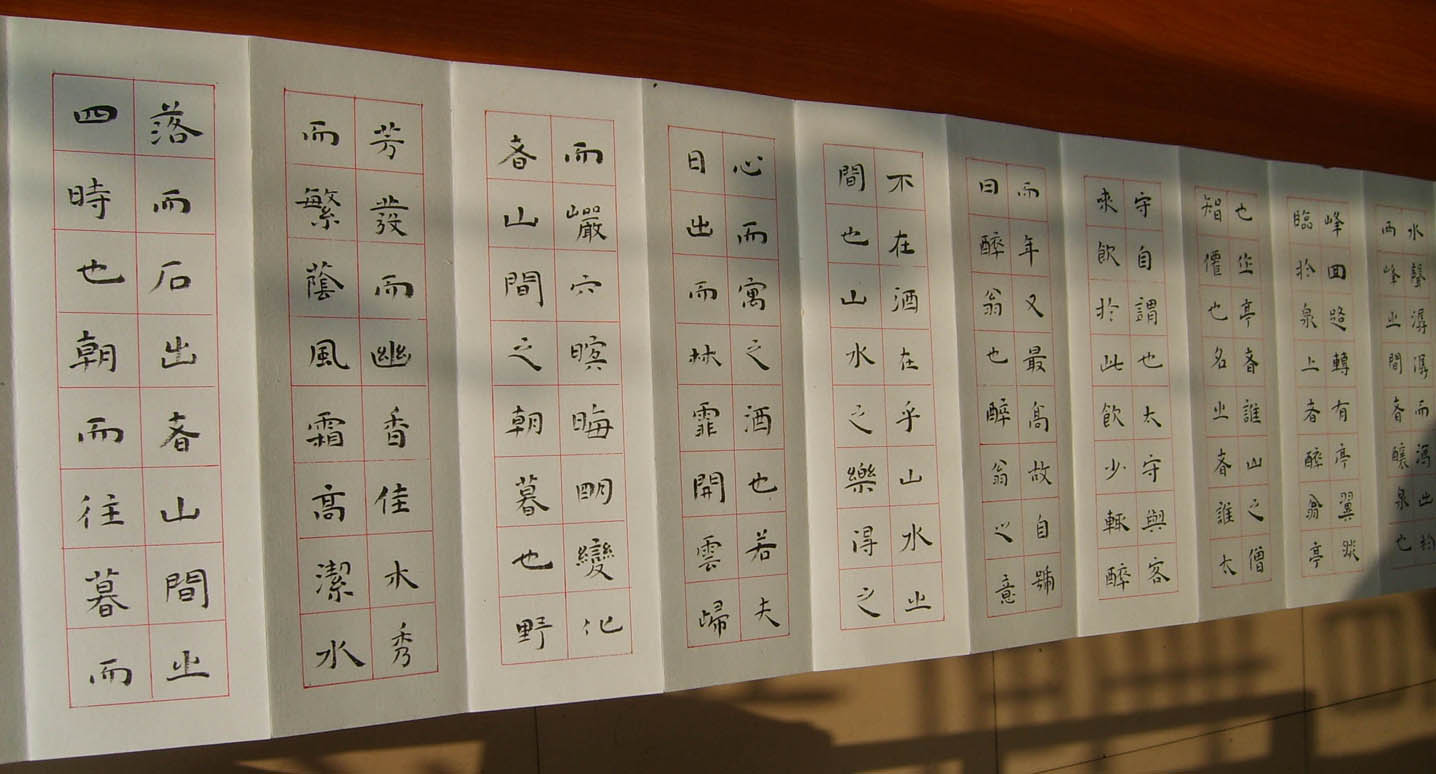 水聲潺潺而瀉出於
兩峰之間者釀泉也
峰回路轉有亭翼然
臨於泉上者醉翁亭
也作亭者誰山之僧
智僊也名之者誰太
守自謂也太守與客
來飲於此飲少輒醉
而年又最高故自號
曰醉翁也醉翁之意
不在酒在乎山水之
間也山水之樂得之
心而寓之酒也若夫
日出而林霏開雲歸
而巖穴暝晦明變化
者山間之朝暮也野
芳發而幽香佳木秀
而繁蔭風霜高潔水
落而石出者山間之
四時也朝而往暮而